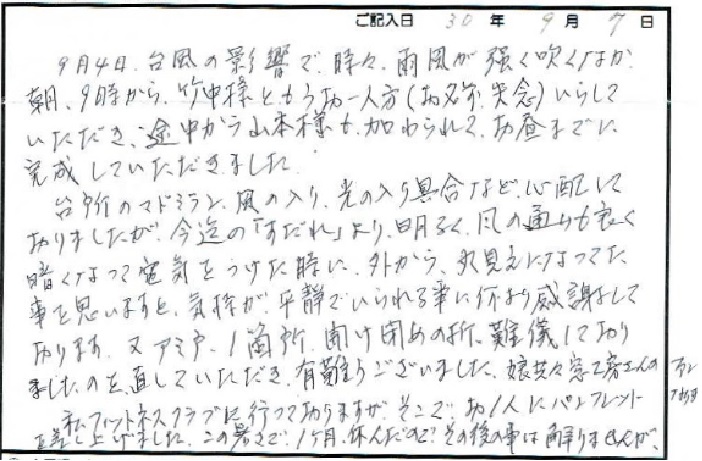 ご記入日 30 年 9 月 7 日
9月4日、台風の影響で、時々、雨風が強く吹くなか、
朝、9時から、竹中様ともうお一人方（お名前、失念）いらして
いただき、途中から山本様も、加わられて、お昼までに
完成していただきました。
台所のマドミラン、風の入り、光の入り具合など、心配して
おりましたが、今迄の「すだれ」より、明るく、風の通りも良く
暗くなって電気をつけた時に、外から、丸見えになってた
事を思いますと、気持が、平静でいられる事に何より感謝して
おります。又アミ戸、1箇所、開け閉めの折、難儀しており
ましたのを、直していただき、有難うございました。娘共々窓工房さんの
私、フィットネスクラブに行っておりますが、そこで、お1人にパンフレット
を差し上げました。この暑さで、1ヶ月、休んだので、その後の事は解りませんが、